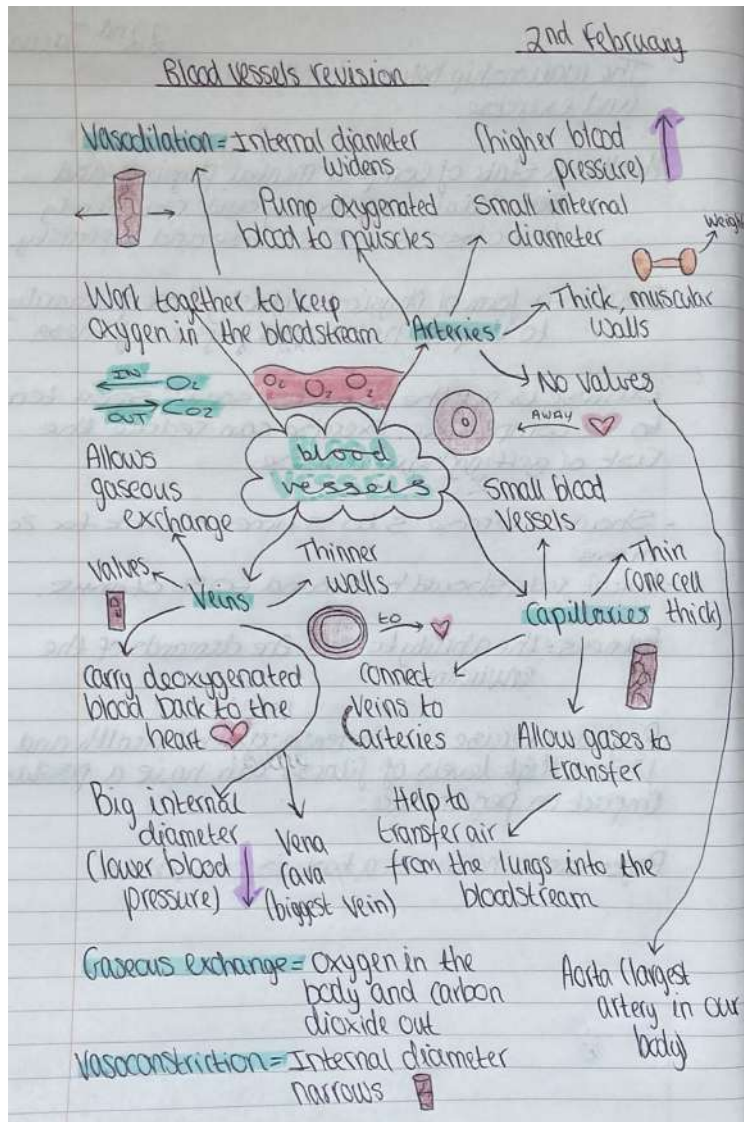 2nd February
Blood vessels revision
Vasodilation = Internal diameter
widens
(higher blood
pressure)
Pump oxygenated
blood to muscles
Small internal
diameter
Weights
Work together to keep
oxygen in the bloodstream
Arteries
Thick, muscular
walls
No valves
IN O2
OUT CO2
O2 O2 O2
AWAY
blood
vessels
Allows
gaseous
exchange
Small blood
vessels
Valves
Veins
Thinner
walls
to
Thin
(one cell
thick)
Capillaries
Carry deoxygenated
blood back to the
heart
Connect
veins to
arteries
Allow gases to
transfer
Big internal
diameter
(lower blood
pressure)
Vena
Cava
(biggest vein)
Help to
transfer air
from the lungs into the
bloodstream
Gaseous exchange = Oxygen in the
body and carbon
dioxide out
Aorta (largest
artery in our
body)
Vasoconstriction = Internal diameter
narrows